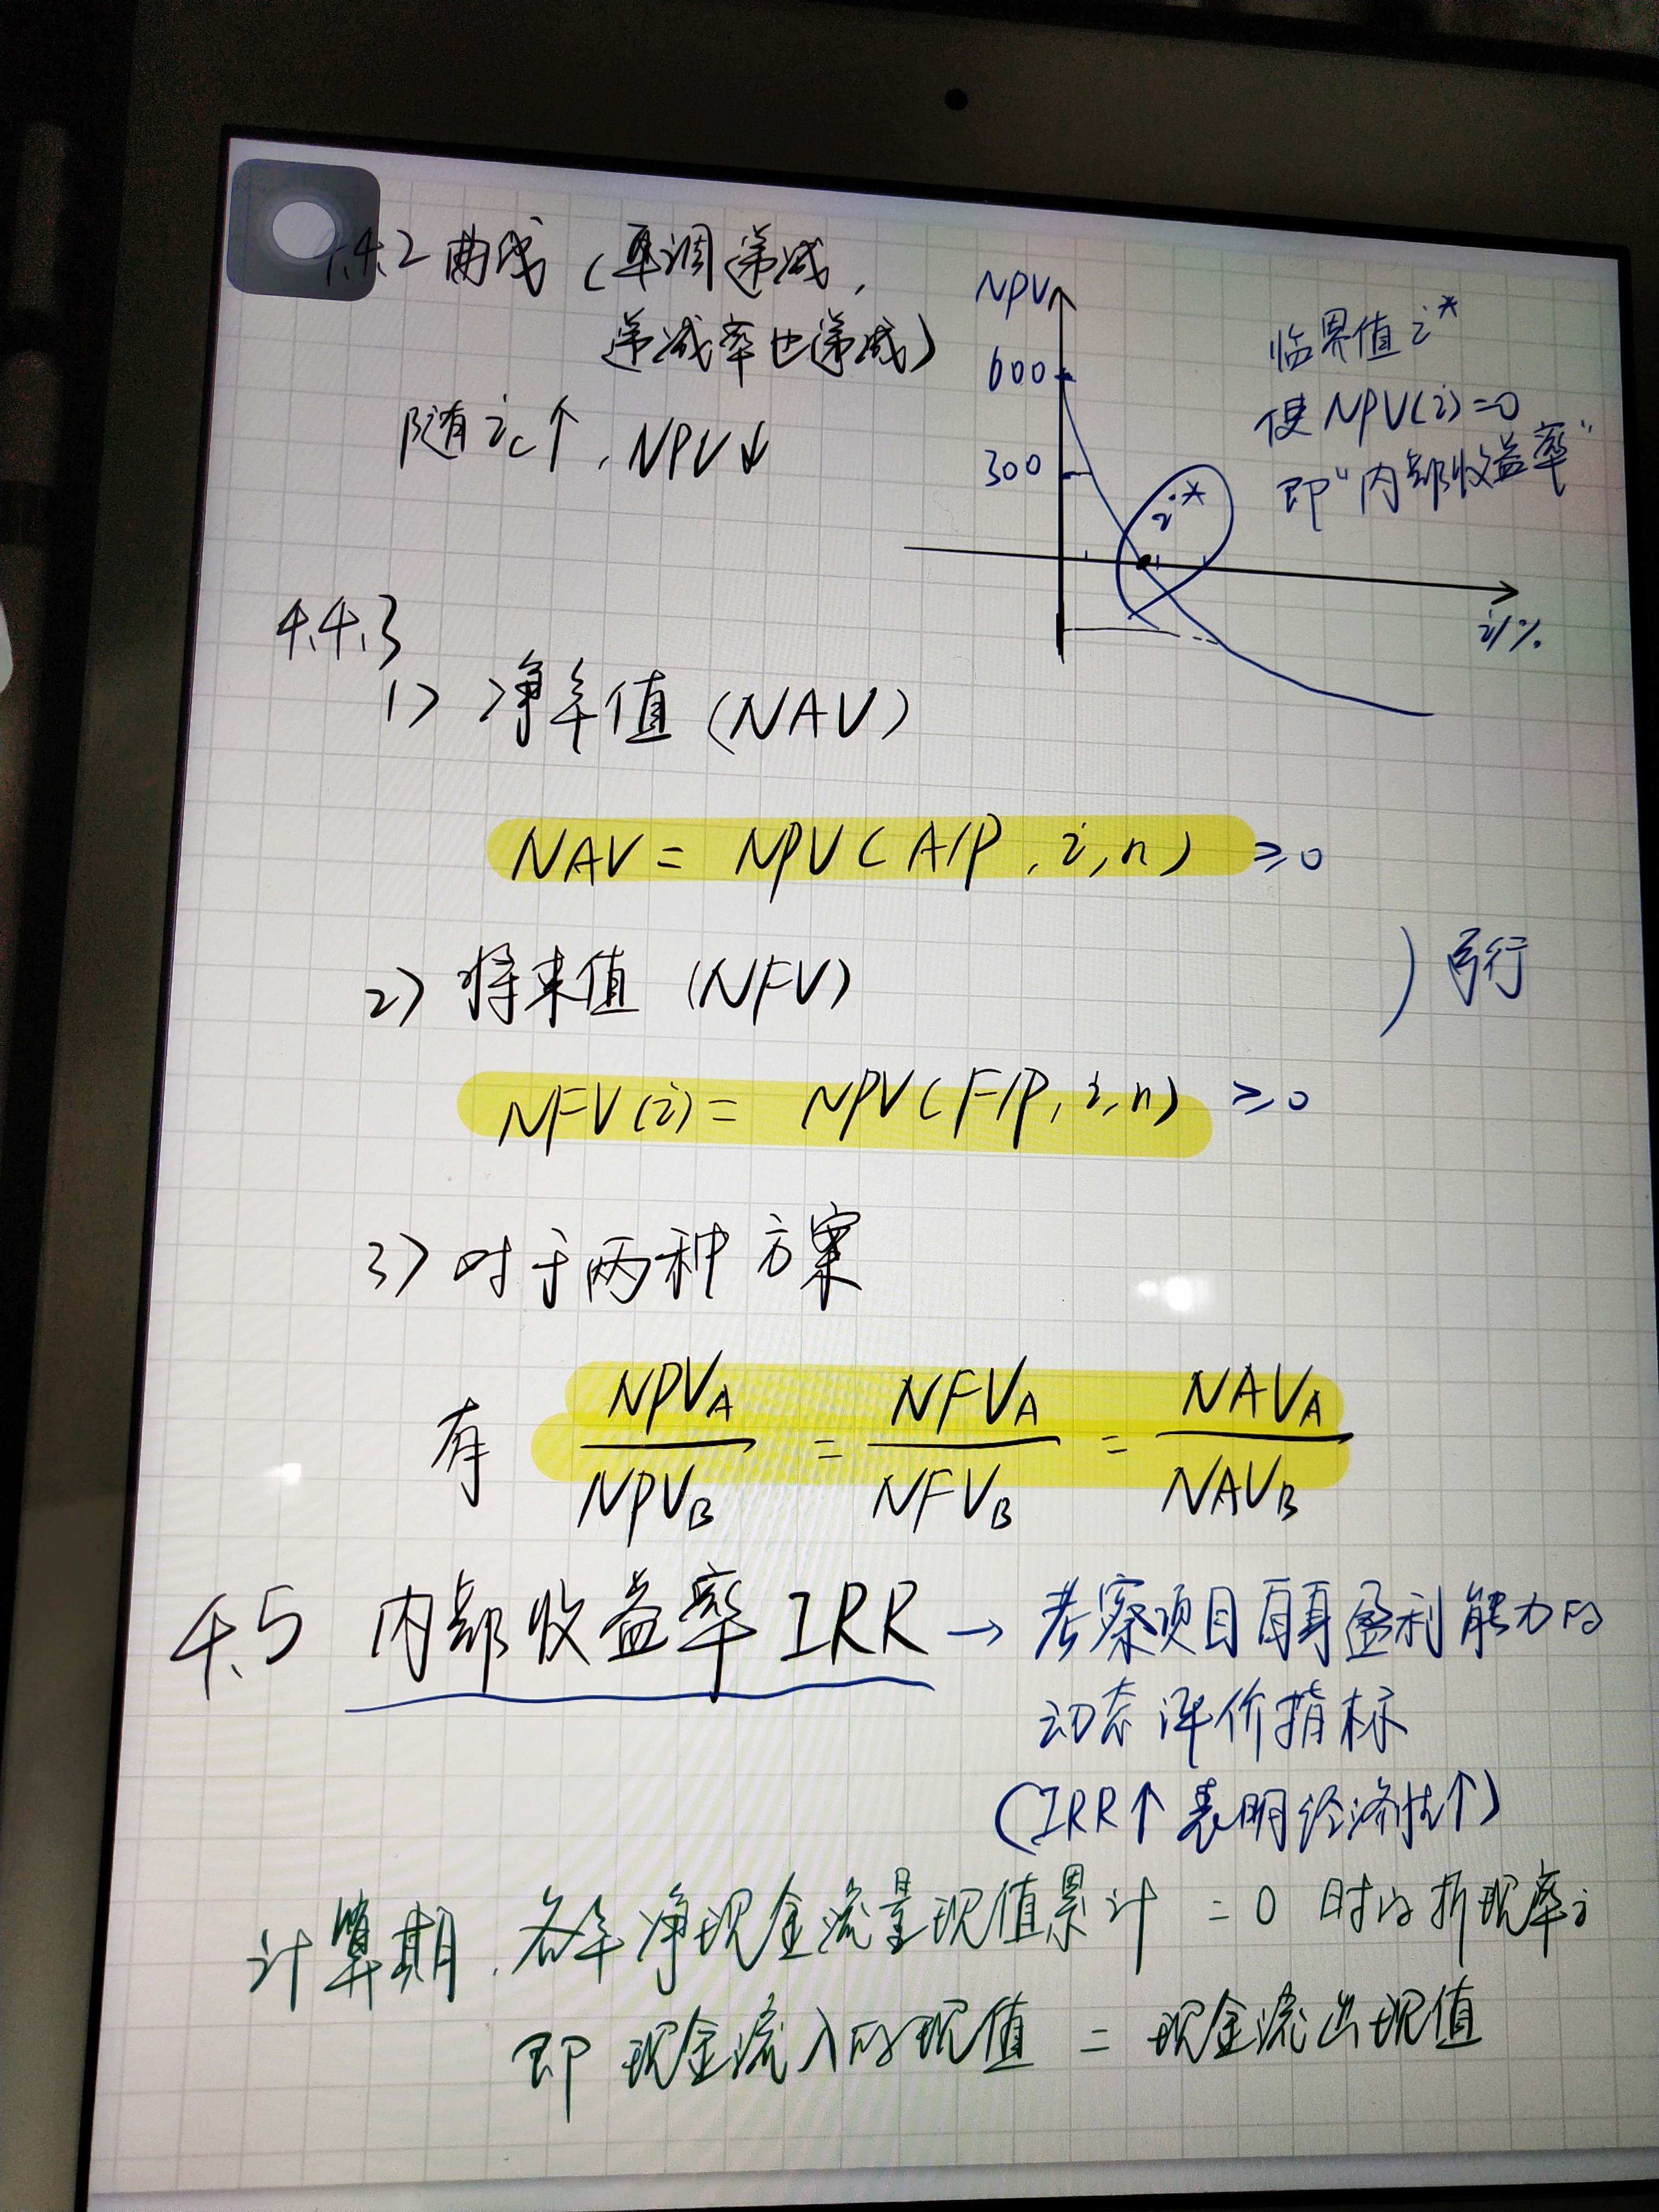 4.4.2 曲线 (单调递减,
递减率也递减)
随着 ic↑, NPV↓
NPV
600
300
i*
i/%
临界值 i*
使 NPV(i)=0
即“内部收益率”
4.4.3
1) 净年值 (NAV)
NAV = NPV(A/P, i, n) ≥0
2) 将来值 (NFV)
) 可行
NFV(i) = NPV(F/P, i, n) ≥0
3) 对于两种方案
有 NPVA/NPVB = NFVA/NFVB = NAVA/NAVB
4.5 内部收益率 IRR → 考察项目自身盈利能力的
动态评价指标
(IRR↑ 表明经济性↑)
计算期, 各年净现金流量现值累计 = 0 时的折现率i
即 现金流入的现值 = 现金流出现值